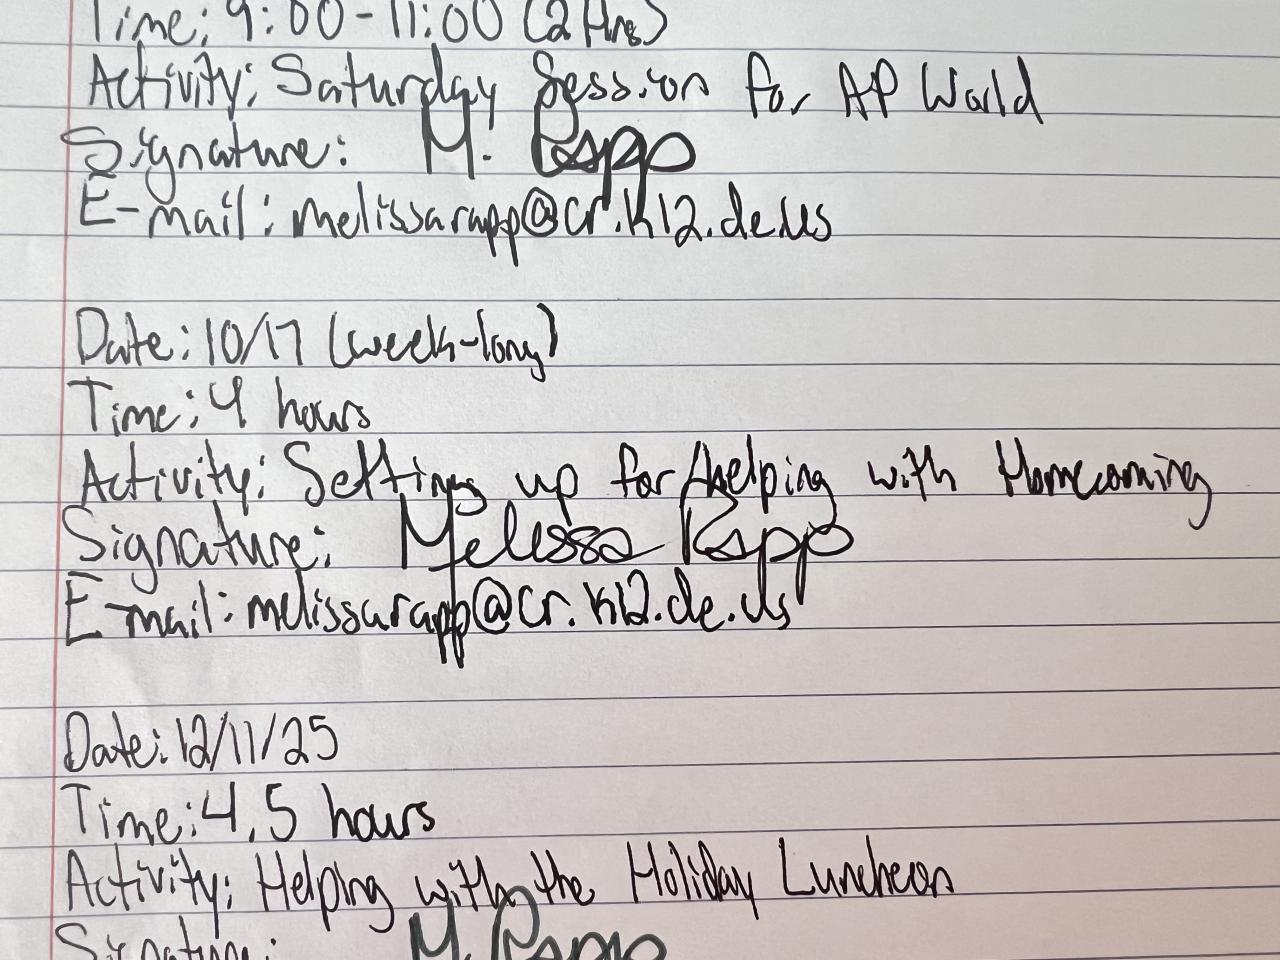 Time: 9:00-11:00 (2 Hrs)
Activity: Saturday Session for AP World
Signature: M. Rapp
E-mail: melissarapp@cr.k12.de.us
Date: 10/17 (week-long)
Time: 4 hours
Activity: Setting up for/helping with Homecoming
Signature: Melissa Rapp
E-mail: melissarapp@cr.k12.de.us
Date: 12/11/25
Time: 4.5 hours
Activity: Helping with the Holiday Luncheon
Signature: M. Rapp